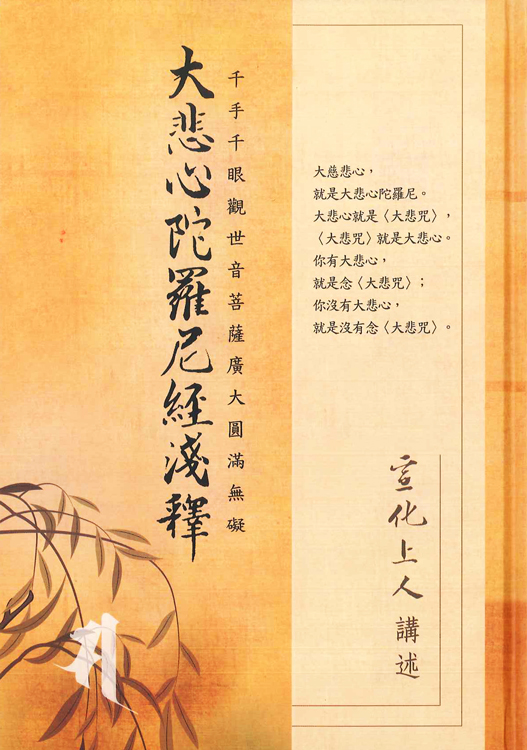 千手千眼觀世音菩薩廣大圓滿無礙
大悲心陀羅尼經淺釋
大慈悲心，
就是大悲心陀羅尼。
大悲心就是〈大悲咒〉，
〈大悲咒〉就是大悲心。
你有大悲心，
就是念〈大悲咒〉；
你沒有大悲心，
就是沒有念〈大悲咒〉。
宣化上人講述